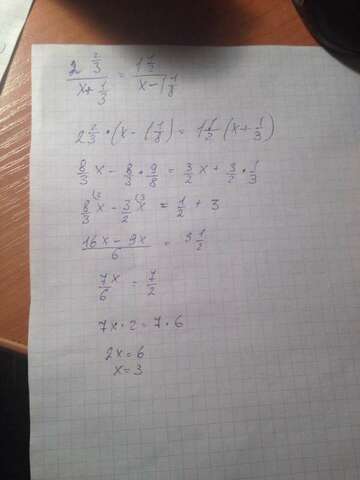 2 2/3 / x+ 1/3 = 1 1/2 / x-1 1/8
2 2/3 · (x - 1 1/8) = 1 1/2 (x + 1/3)
8/3 x - 8/3 · 9/8 = 3/2 x + 3/2 · 1/3
8/3 (2 x - 3/2 (3 x = 1/2 + 3
16x - 9x / 6 = 3 1/2
7/6 x - 7/2
7x · 2 = 7 · 6
2x = 6
x = 3